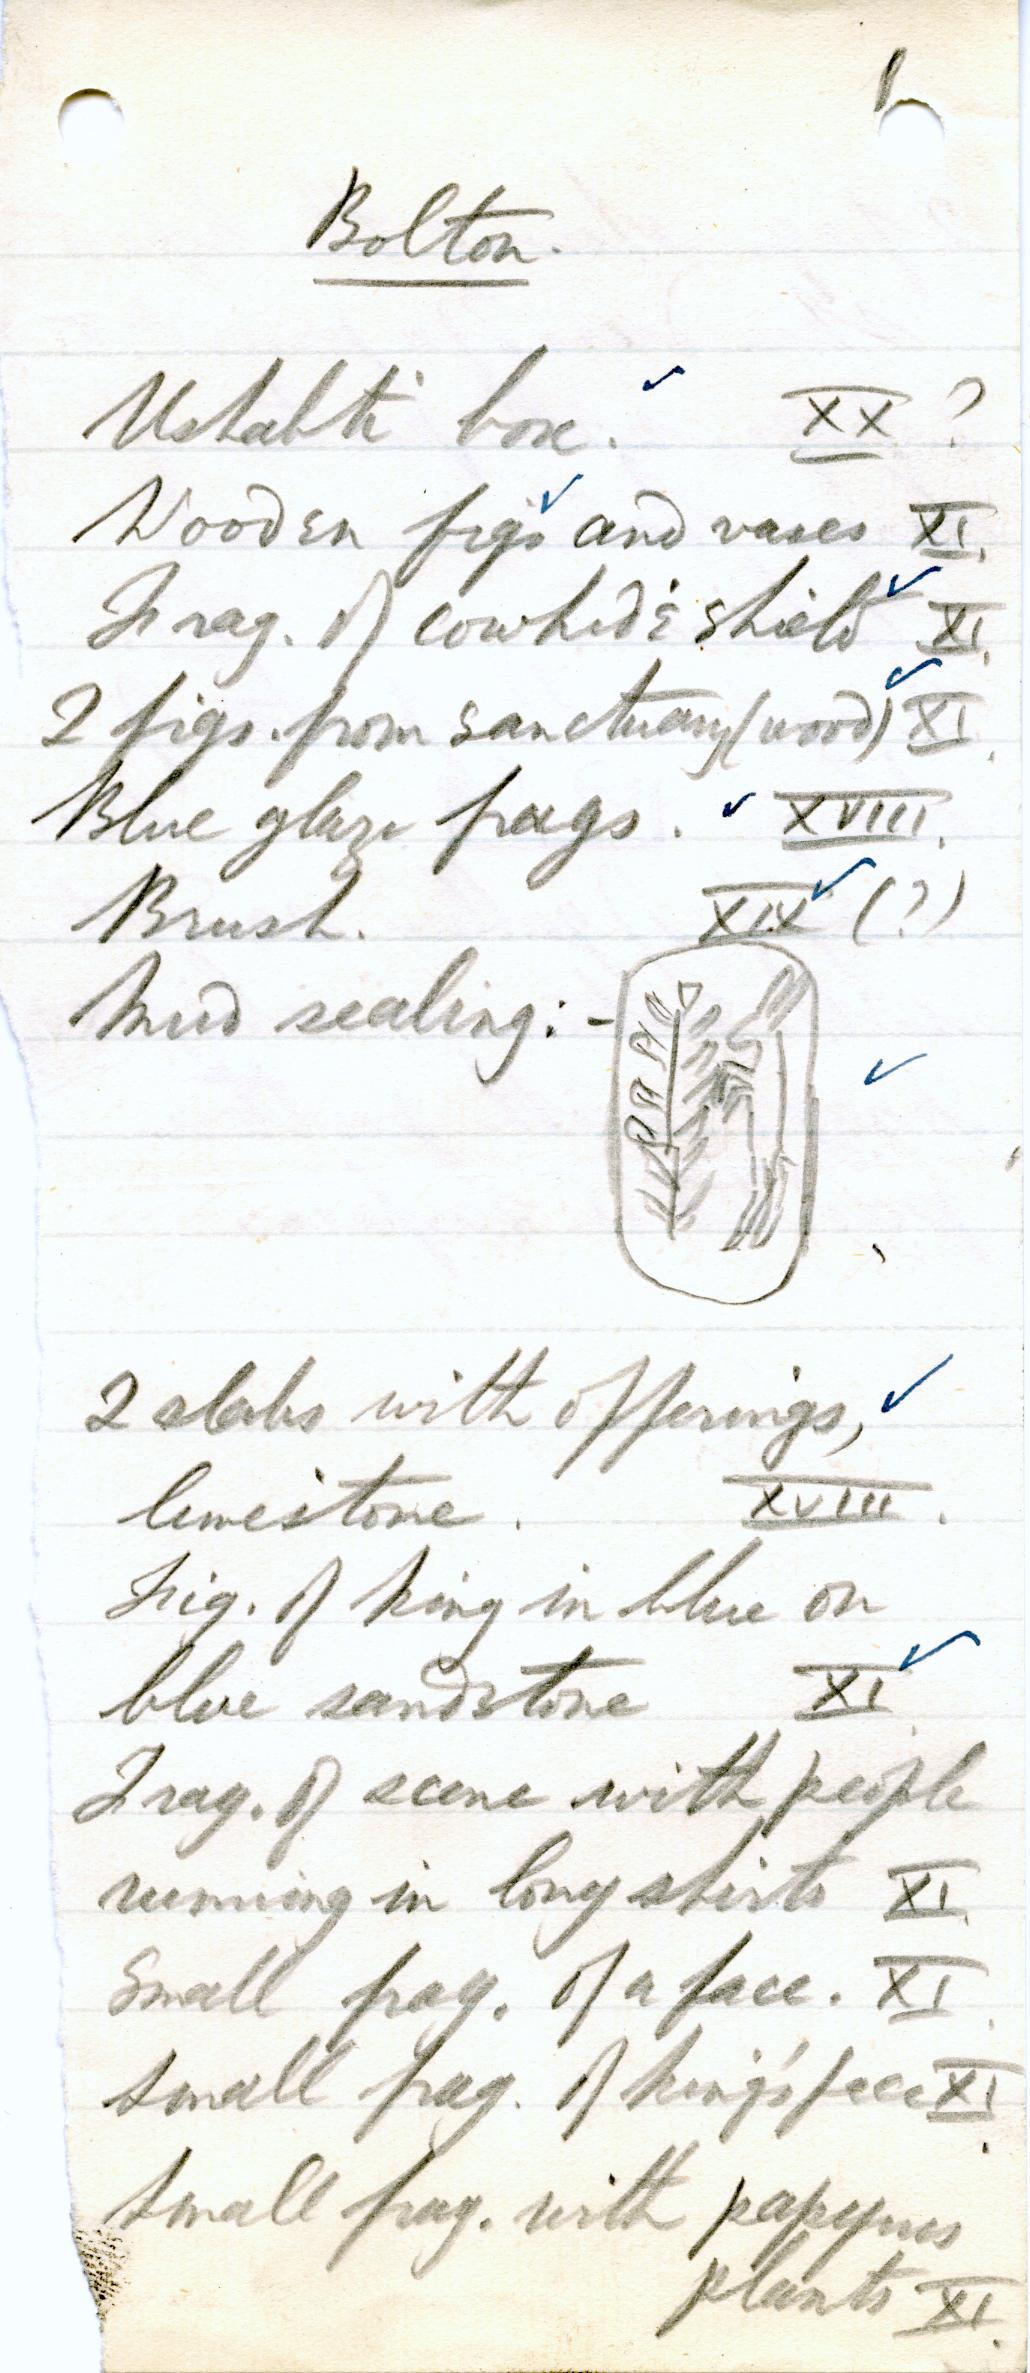 1
Bolton.
Ushabti box. ✓ XX ?
Wooden figs ✓ and vases XI.
Frag. of cowhide shield ✓ XI.
2 figs. from sanctuary (wood) ✓ XI.
Blue glaze frags. ✓ XVIII.
Brush. XIX ✓ (?)
Mud sealing:- ✓
2 slabs with offerings, ✓
limestone. XVIII.
Fig. of king in blue on
blue sandstone XI ✓
Frag. of scene with people
running in long shirts XI.
Small frag. of a face. XI.
Small frag. of king's face XI.
Small frag. with papyrus
plants XI.